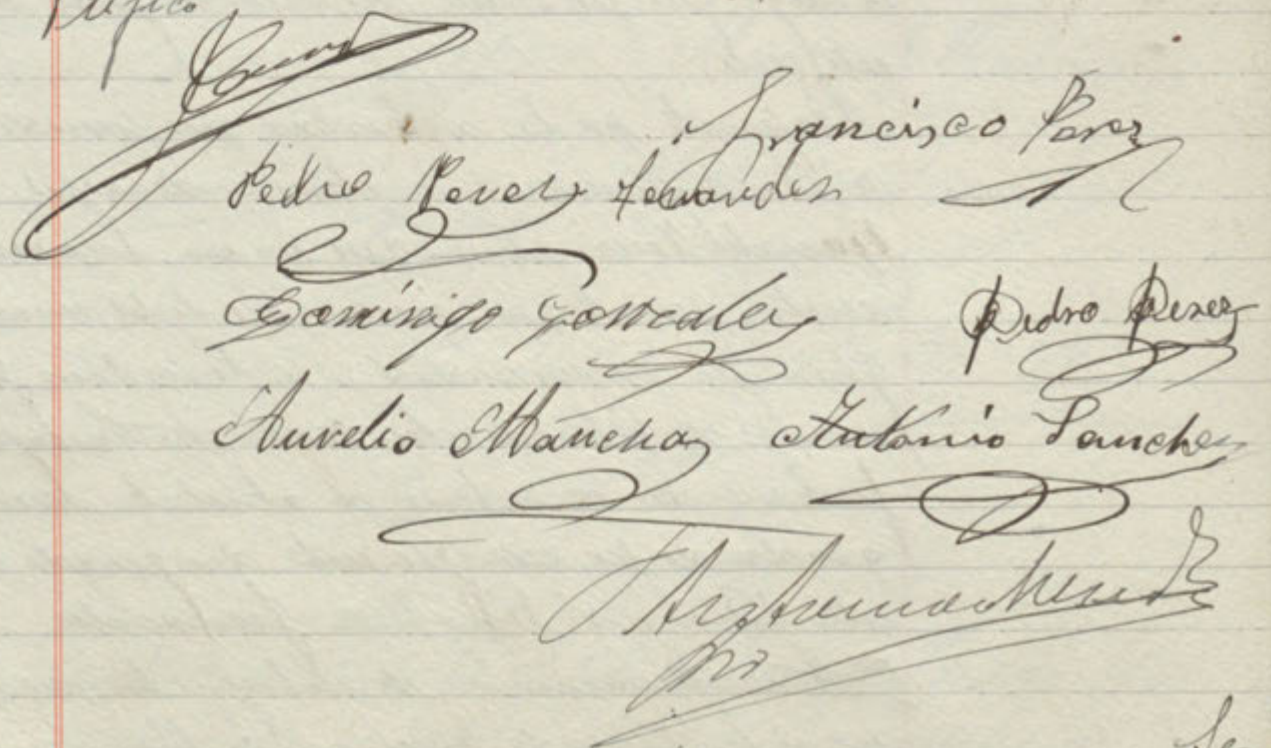 Francisco Perez
Pedro Perez Fernandez
Domingo Gonzalez Pedro Perez
Aurelio Mancha Antonio Sanchez
Antonio